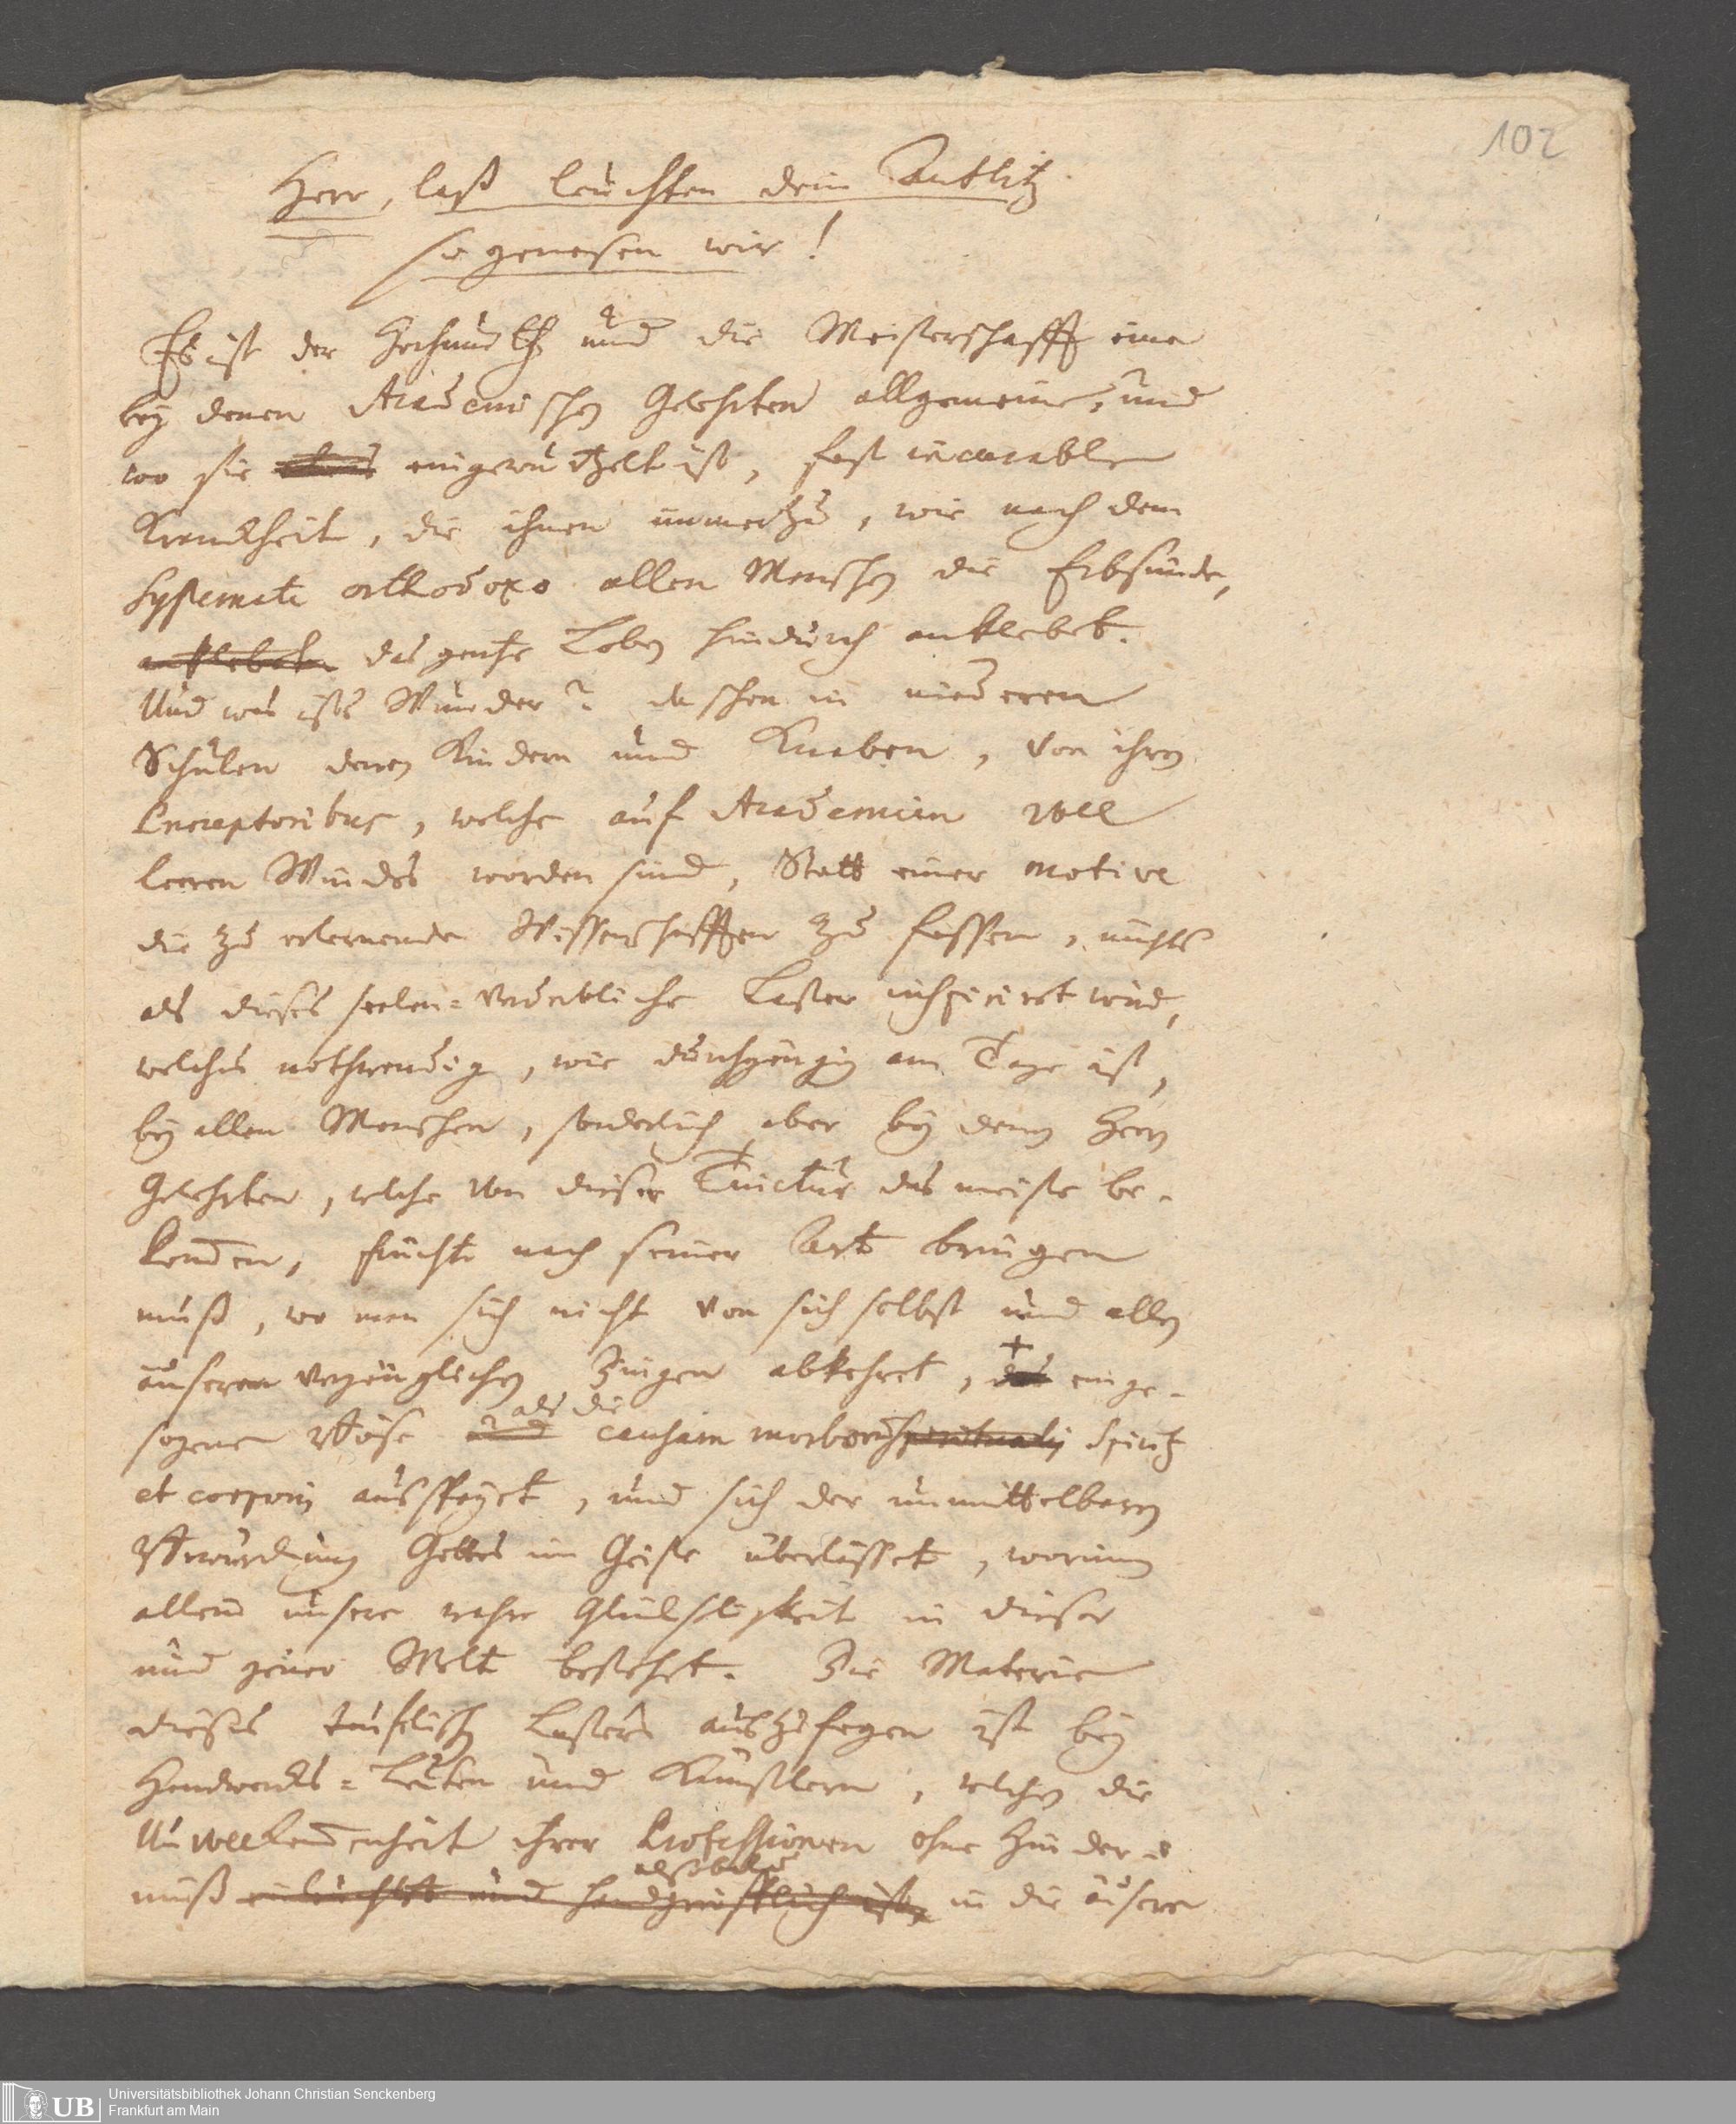 102
Herr, laß leuchten dein Antlitz
so genesen wir!
Es ist der Hochmuth und die Meisterschafft eine
bey denen Academischen Gelehrten allgemeine, und
wo sie eingewurtzelt ist, fast incurable
Kranckheit, die ihnen immerzu, wie nach dem
Systemate orthodoxo allen Menschen die Erbsünde,
ankleben das gantze Leben hindurch anklebet.
Und was ists Wunder? da schon in niederen
Schulen denen Kindern und Knaben, von ihren
Praeceptoribus, welche auf Academien voll
leeren Windes worden sind, Statt einer motive
die zu erlernende Wissenschafften zu fassen, nichts
als dieses seelen=verderbliche Laster inspiriret wird,
welches nothwendig, wie durchgängig am Tage ist,
bey allen Menschen, sonderlich aber bey denen Herrn
Gelehrten, welche von dieser Tinctur das meiste be-
kommen, früchte nach seiner Art bringen
muß, wo man sich nicht von sich selbst und allen
äuseren vergänglichen Dingen abkehret, das einge-
sogene Böse und als die causam morborum spiritualis Spiritus
et corporis ausspeyet, und sich der unmittelbaren
Gottes im Geiste überlässet, worinn
allein unsere wahre Glükseligkeit in dieser
und jener Welt bestehet. Die Materie
dieses teuflischen Lasters auszufegen ist bey
Handwercks=Leuten und Künstlern, welchen die
Unvollkommenheit ihrer Professionen ohne Hinder-
nuß einleuchtet und handgreifflich ist, alsobald in die äusere
Universitätsbibliothek Johann Christian Senckenberg
Frankfurt am Main
UB